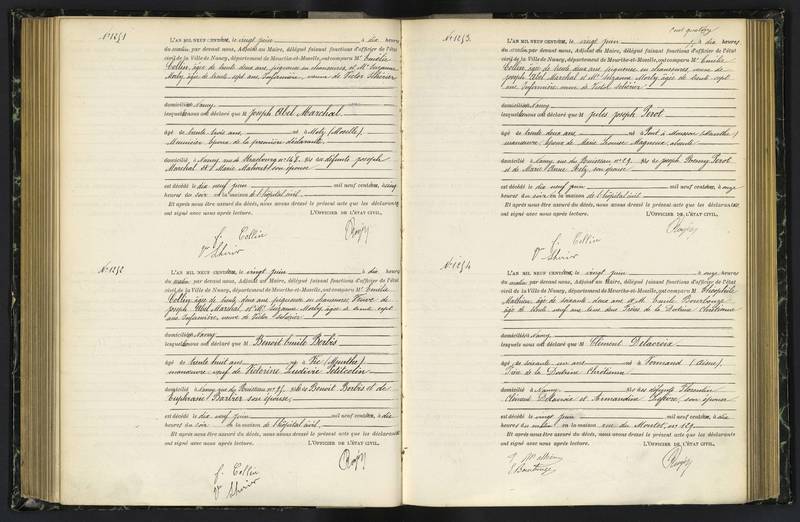 N° 1251
L'AN MIL NEUF CENT, le vingt juin à dix heures
du matin, par devant nous, Adjoint au Maire, délégué faisant fonctions d'officier de l'état
civil de la Ville de Nancy, département de Meurthe-et-Moselle, ont comparu M Emélie
Collin, âgée de trente deux ans, piqueuse en chaussures, et Mme Suzanne
Morly âgée de trente sept ans, Infirmière, veuve de Victor
domiciliés à Nancy
lesquels nous ont déclaré que M Joseph Abel Marchal
âgé de trente trois ans, né à Metz (Moselle).
Menuisier époux de la première déclarante.
domicilié à Nancy, rue de Strasbourg n° 148, fils de défunts Joseph
Marchal et Marie son épouse
est décédé le dix neuf juin mil neuf cent, à cinq
heures du soir en la maison de l'hôpital civil.
Et après nous être assuré du décès, nous avons dressé le présent acte que les déclarants
ont signé avec nous après lecture. L'OFFICIER DE L'ÉTAT CIVIL,
f. Collin
Vve
N° 1252
L'AN MIL NEUF CENT, le vingt juin à dix heures
du matin, par devant nous, Adjoint au Maire, délégué faisant fonctions d'officier de l'état
civil de la Ville de Nancy, département de Meurthe-et-Moselle, ont comparu M Emélie
Collin, âgée de trente deux ans piqueuse en chaussures, Veuve de
Joseph Abel Marchal et Mme Suzanne Morly âgée de trente sept
ans Infirmière, veuve de Victor
domiciliés à Nancy
lesquels nous ont déclaré que M Benoit Emile Borbis
âgé de trente huit ans né à Vic (Meurthe).
manœuvre veuf de Victorine Ludivie Petitcolin
domicilié à Nancy, rue du Ruisseau n° fils de Benoit Borbis et de
Euphrasie Barbier son épouse
est décédé le dix neuf juin mil neuf cent, à dix
heures du soir en la maison de l'hôpital civil.
Et après nous être assuré du décès, nous avons dressé le présent acte que les déclarants
ont signé avec nous après lecture. L'OFFICIER DE L'ÉTAT CIVIL,
f. Collin
Vve
N° 1253
L'AN MIL NEUF CENT, le vingt juin à dix heures
du matin, par devant nous, Adjoint au Maire, délégué faisant fonctions d'officier de l'état
civil de la Ville de Nancy, département de Meurthe-et-Moselle, ont comparu M Emélie
Collin, âgée de trente deux ans, piqueuse en chaussures, veuve de
Joseph Abel Marchal et Mme Suzanne Morly âgée de trente sept
ans Infirmière veuve de Victor
domiciliés à Nancy
lesquels nous ont déclaré que M Jules Joseph Perot
âgé de trente deux ans né à Pont à Mousson (Meurthe)
manœuvre, époux de Marie Louise Magnieu, absente
domicilié à Nancy, rue du Ruisseau n° 29, fils de Joseph Perot
et de Marie Anne son épouse
est décédé le dix neuf juin mil neuf cent, à onze
heures du soir en la maison de l'hôpital civil
Et après nous être assuré du décès, nous avons dressé le présent acte que les déclarants
ont signé avec nous après lecture. L'OFFICIER DE L'ÉTAT CIVIL,
f. Collin
Vve
N° 1254
L'AN MIL NEUF CENT, le vingt juin à onze heures
du matin, par devant nous, Adjoint au Maire, délégué faisant fonctions d'officier de l'état
civil de la Ville de Nancy, département de Meurthe-et-Moselle, ont comparu M Théophile
Mathieu, âgé de soixante deux ans et M. Emile
âgé de trente neuf ans tous deux Frères de la Doctrine Chrétienne
domiciliés à Nancy
lesquels nous ont déclaré que M Clément Delacroix
âgé de soixante un ans né à Vermand (Aisne).
Frère de la Doctrine Chrétienne
domicilié à Nancy fils de défunts Florentin
Clément Delacroix et Armandine Lefèvre, son épouse
est décédé le vingt juin mil neuf cent, à dix
heures du matin en la maison rue du Montet, n° 129
Et après nous être assuré du décès, nous avons dressé le présent acte que les déclarants
ont signé avec nous après lecture. L'OFFICIER DE L'ÉTAT CIVIL,